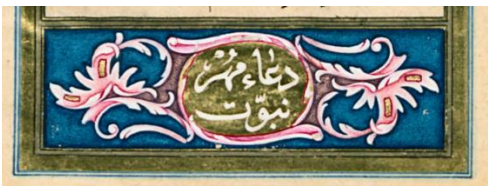 دعاء مهر
نبوّت